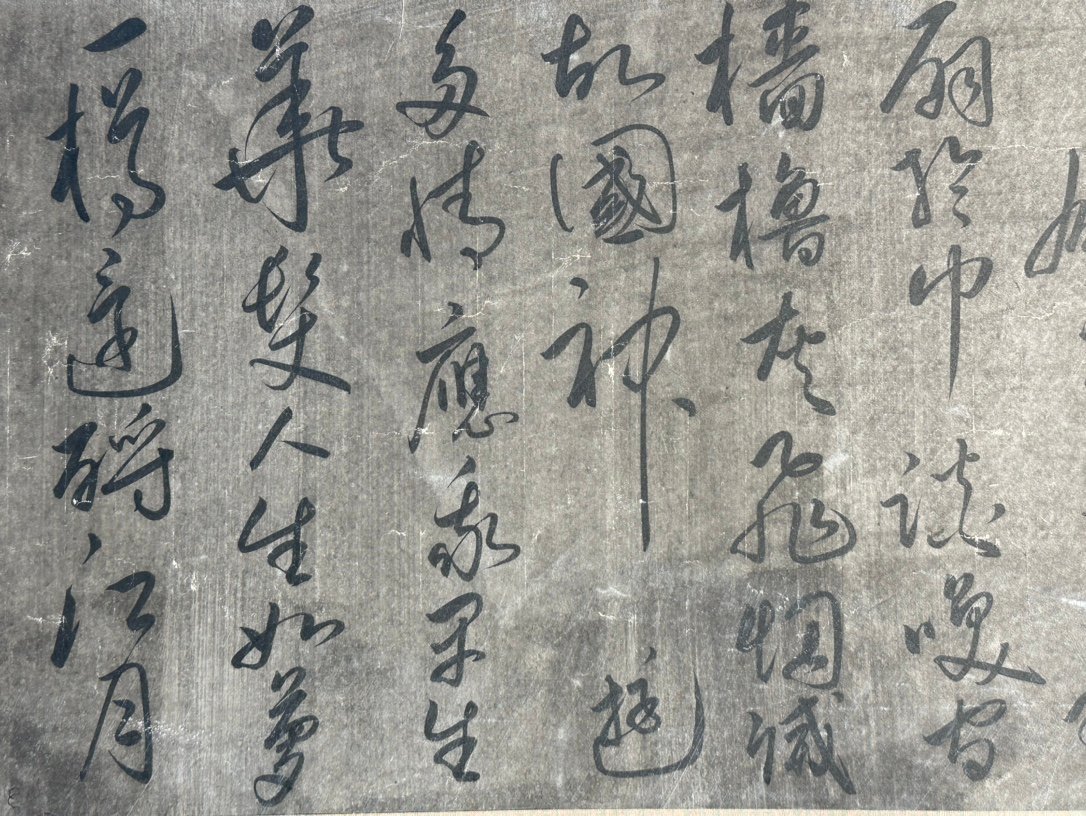 扇綸巾談笑間
檣櫓灰飛烟滅
故國神遊
多情應我早生
華髮人生如夢
一樽還酹江月